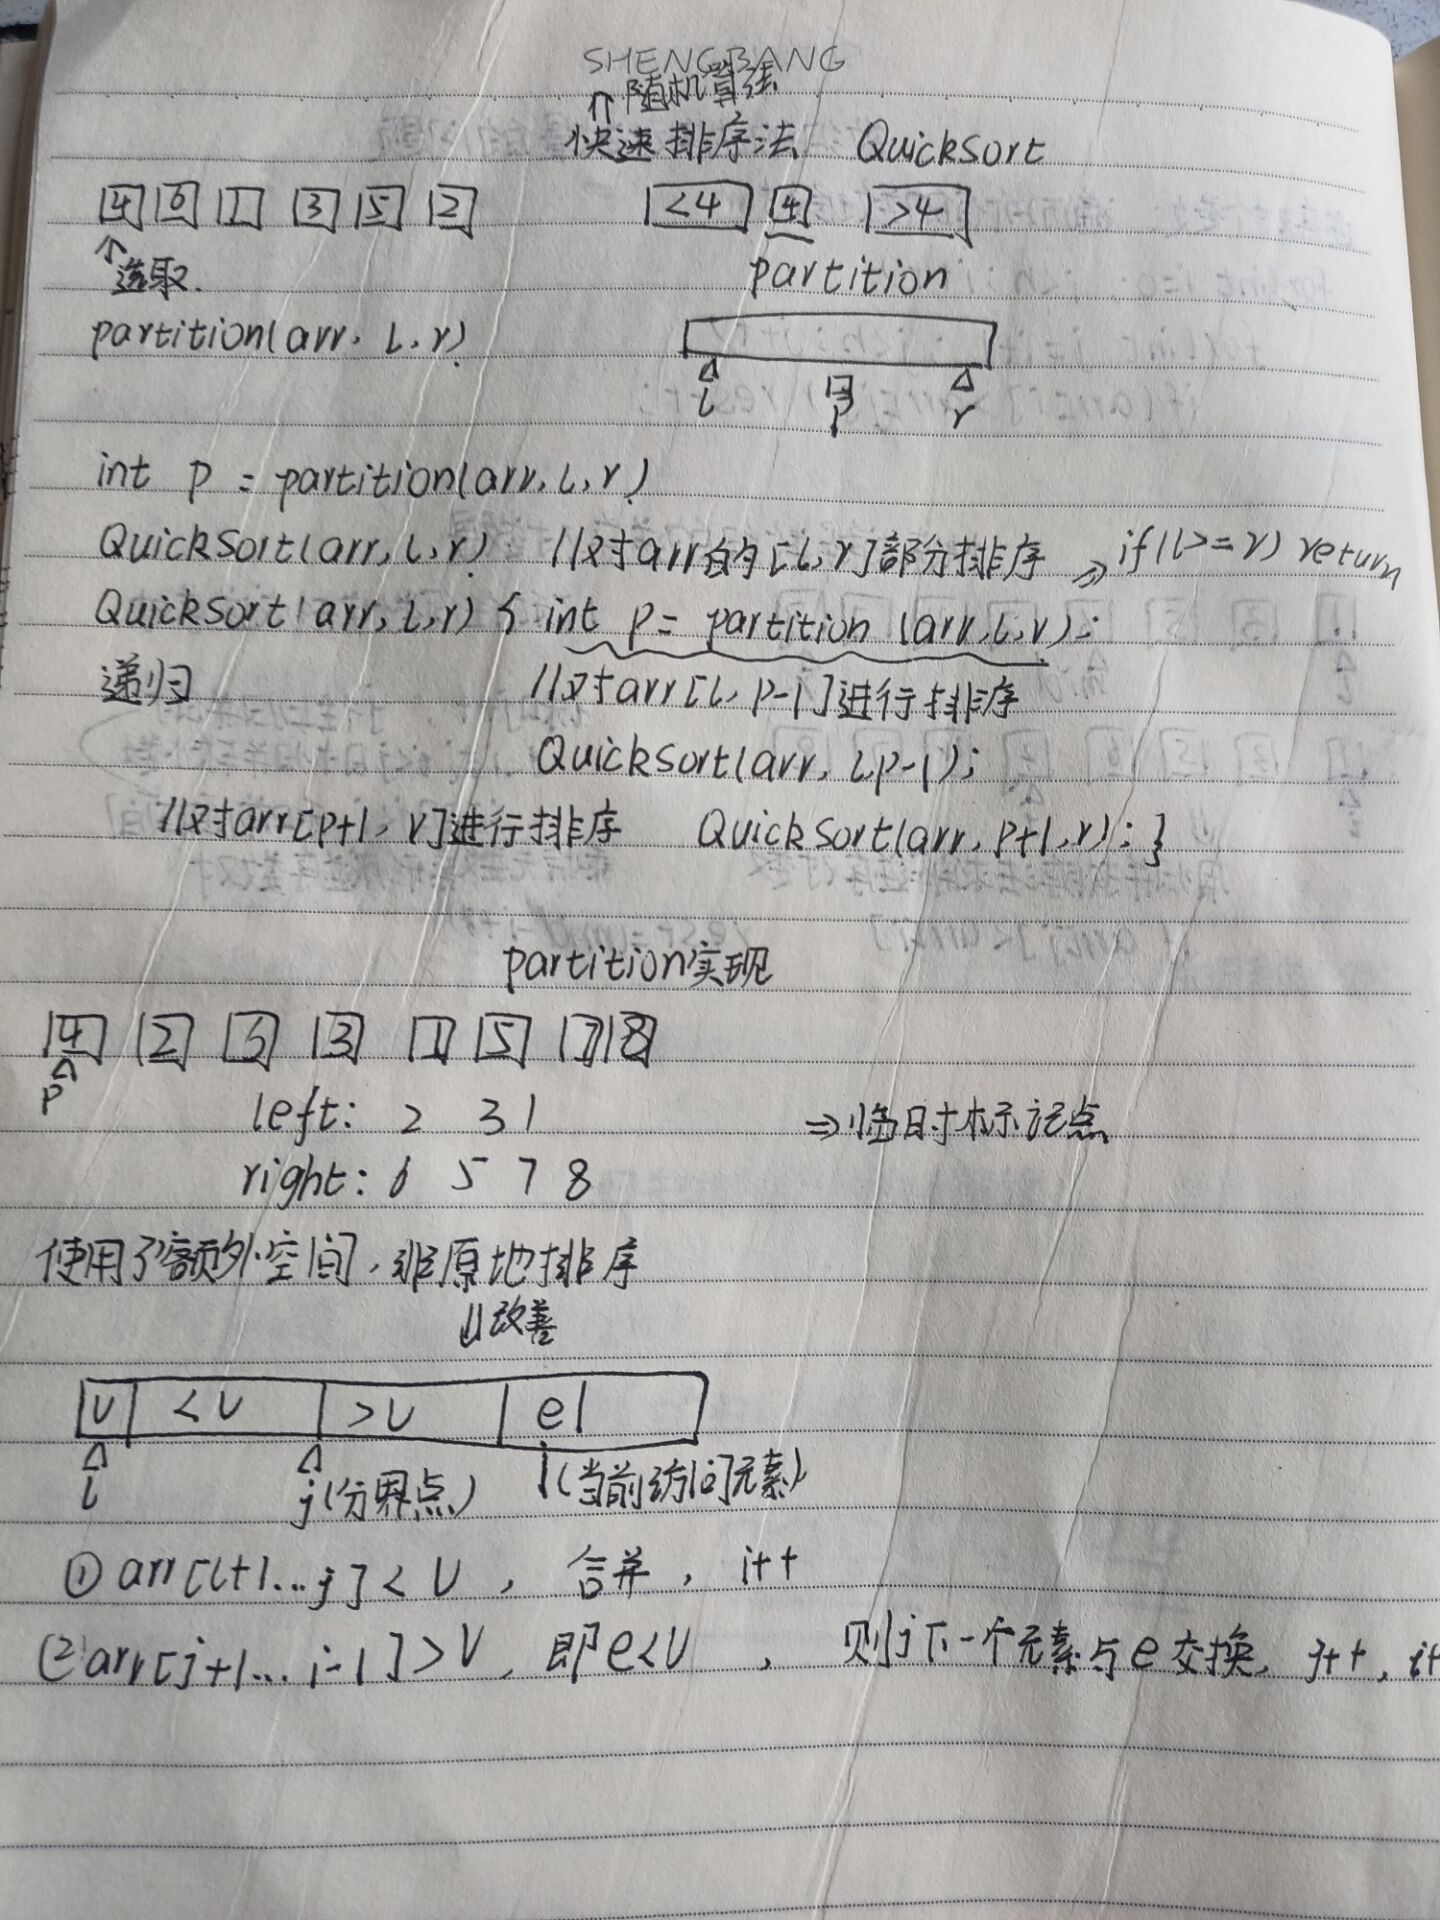 SHENGBANG
⇑ 随机算法
快速排序法 QuickSort
4 6 1 3 5 2 <4 4 >4
↑选取. partition
partition(arr, l, r)
l p r
int p = partition(arr, l, r)
QuickSort(arr, l, r) //对arr的[l, r]部分排序 ⇒ if(l>=r) return
QuickSort(arr, l, r) { int p = partition (arr, l, r);
递归 //对arr[l, p-1]进行排序
QuickSort(arr, l, p-1);
//对arr[p+1, r]进行排序 QuickSort(arr, p+1, r); }
partition实现
4 2 6 3 1 5 7 8
p
left: 2 3 1 ⇒临时标记点
right: 6 5 7 8
使用了额外空间, 非原地排序
⇓改善
v <v >v e
l j(分界点) i(当前访问元素)
① arr[l+1...j] < v , 合并 , i++
② arr[j+1...i-1] > v, 即e<v , 则j下一个元素与e交换, j++, i+